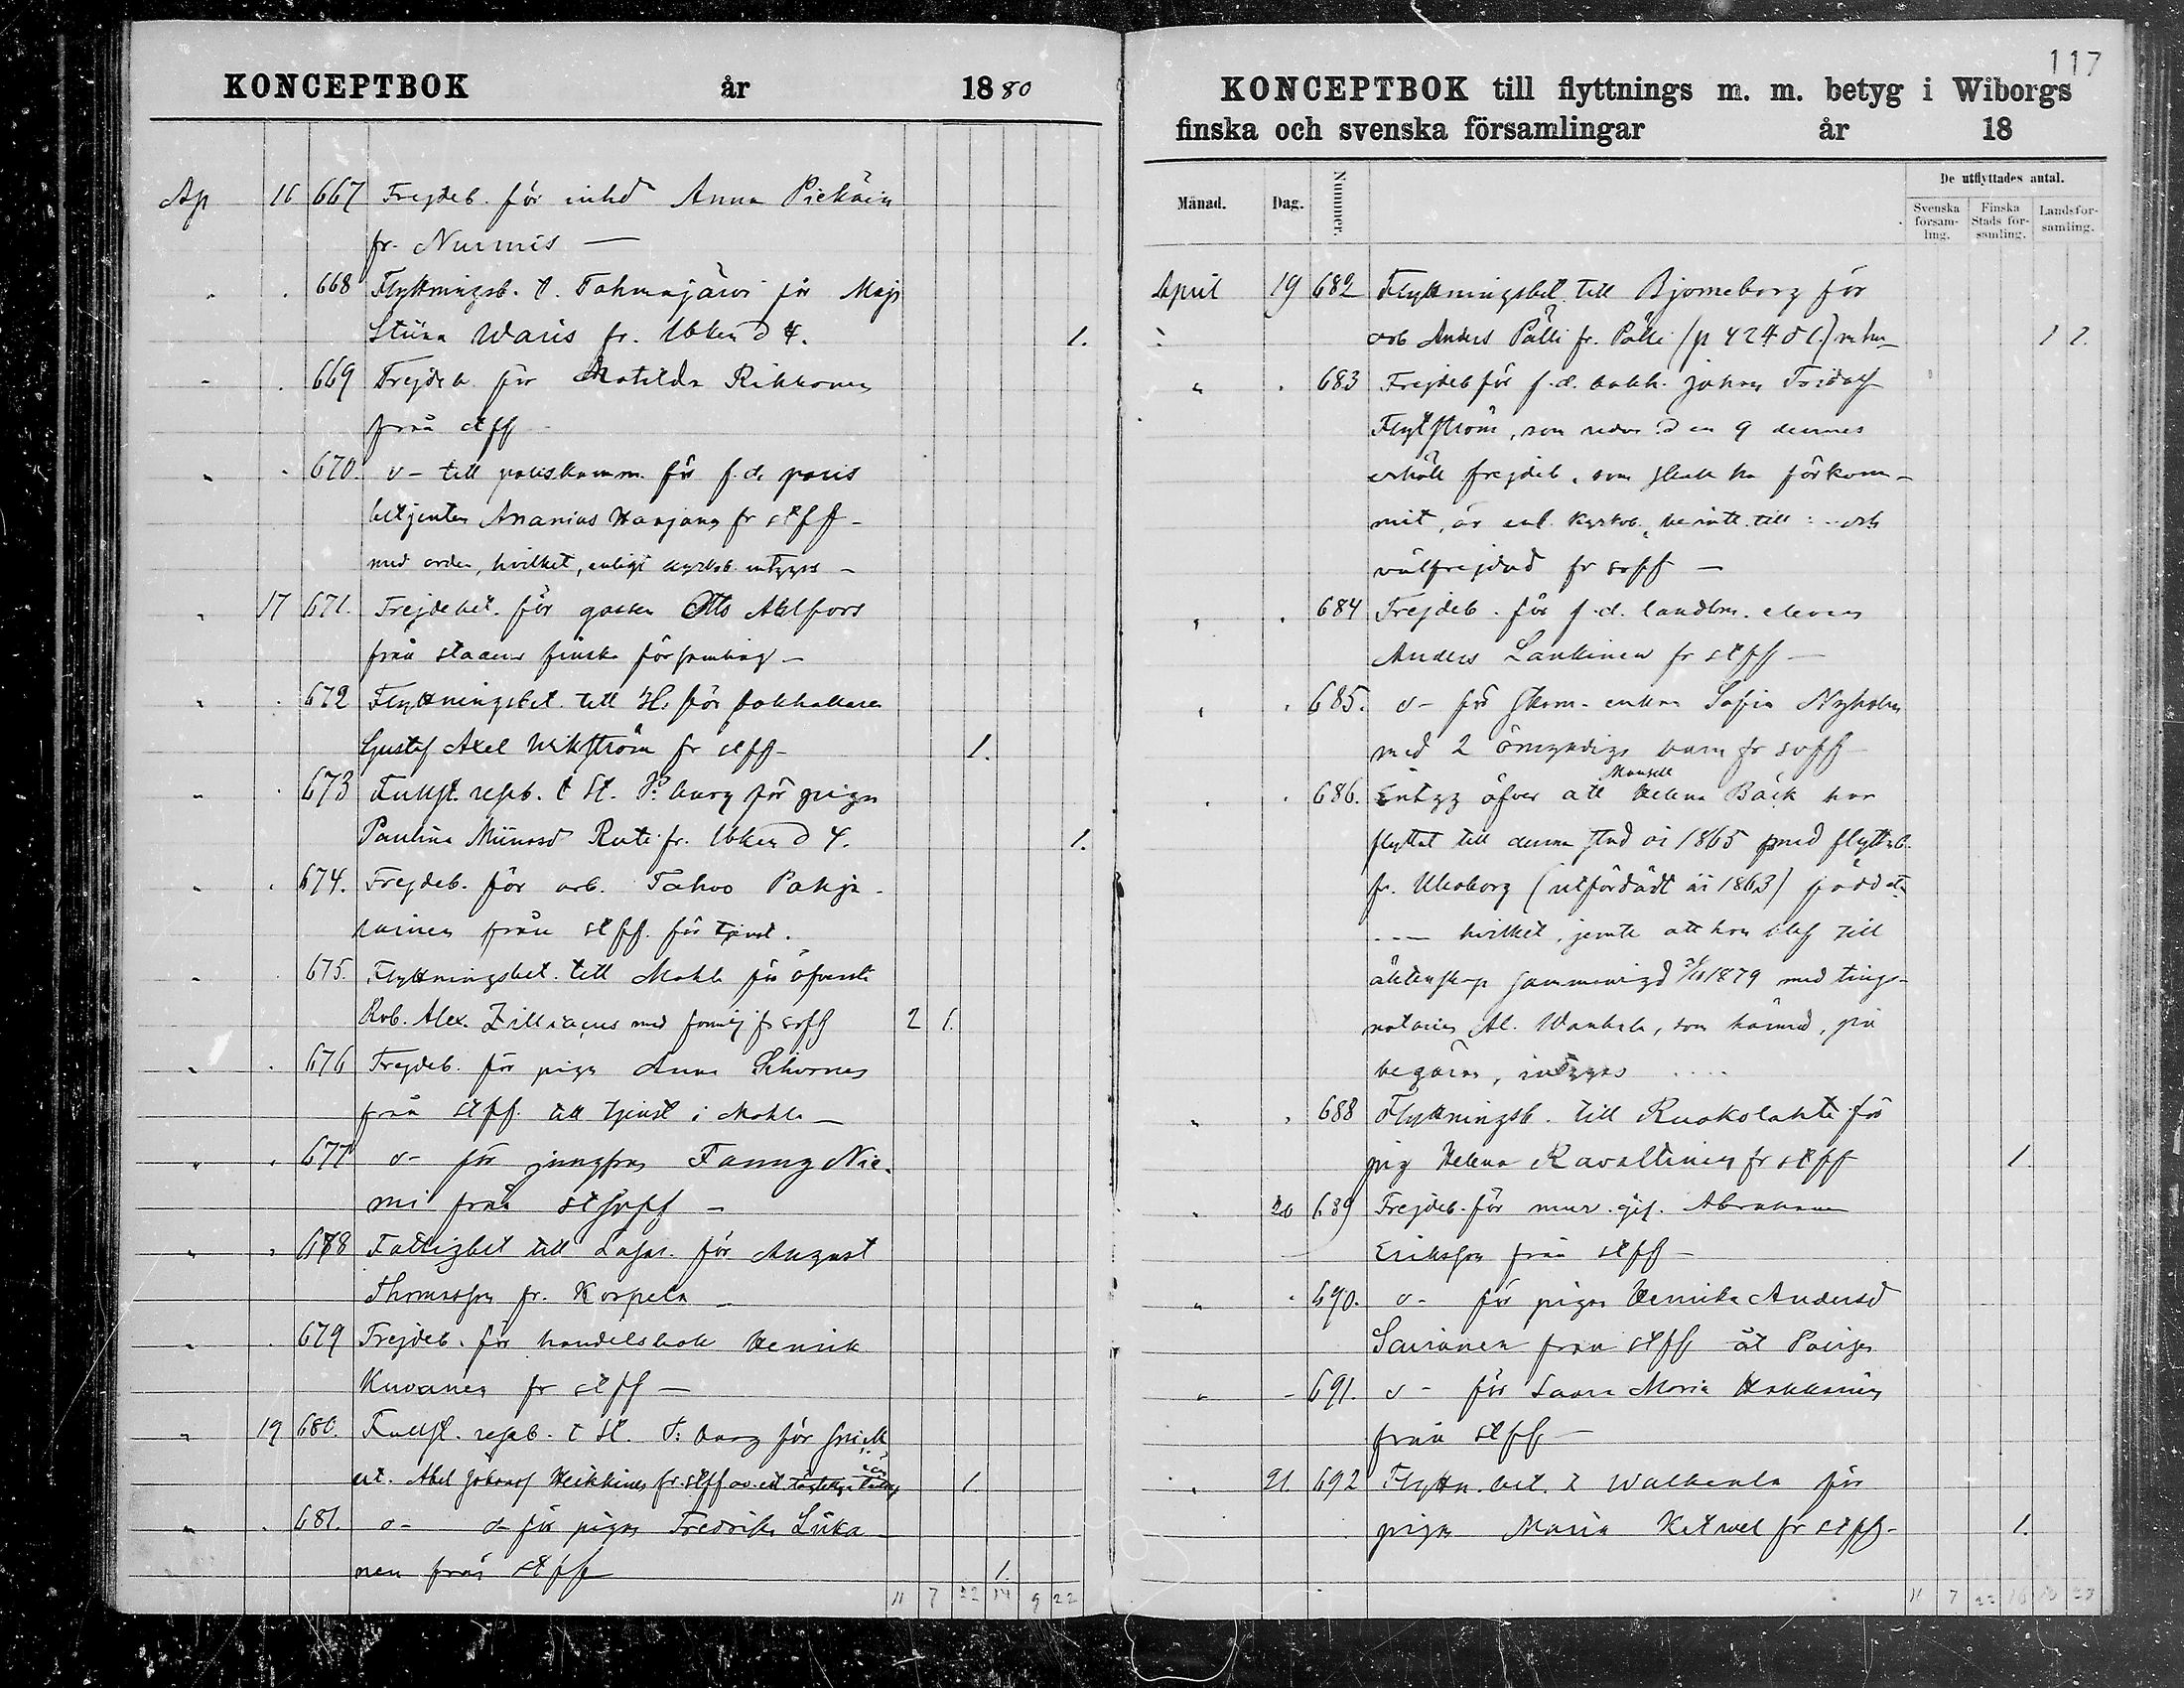 KONCEPTBOK år 1880
Ap 16 667 Frejdeb. för inhd Anna Piekäin
fr. Nurmis —
" . 668 Flyttningsb. t. Tohmajärvi för Maja
Stiina Waris fr. 1. 
" . 669 Frejdeb. för Matilda Rikkonen
från stff
" . 670. d- till poliskamm. för f.d. polis
betjenten Ananias Harjanen fr stff -
med orden, hvilket, enligt kyrkob. intygas -
" 17 671. Frejdebet. för gossen Otto Ahlfors
från stadens finska församling -
" . 672 Flyttningsbet. till H:fors för bokhållaren
Gustaf Axel Wikström fr stff - 1.
" . 673 Fullst. resb. t St. P:burg för pigan
Paulina Rute fr. 1.
" . 674. Frejdeb. för arb. Tahvo Pakja-
rainen från stff. för tjenst.
" . 675. Flyttningsbet. till Mohla för öfverste
Rob. Alex. Zilliacus med familj fr soff 2 1.
" . 676 Frejdeb. för pigan Anna Sihvonen
från stff. till tjenst i Mohla -
" . 677 d- för jungfrun Fanny Nie-
mi från stff -
" . 678 Fattigbet till Lasar. för August
Thomasson fr. Korpela -
" . 679 Frejdeb. för handelsbok Henrik
Kuvanen fr stff —
" 19 680. Fullst. resb. t St. P:burg för
Abel Johansson Heikkinen fr. stff 1.
" . 681. d- d- för pigan Fredrika Liika-
nen från stff 1.
11 7 22 14 9 22
117
KONCEPTBOK till flyttnings m. m. betyg i Wiborgs
finska och svenska församlingar år 18
Månad. Dag. Nummer. De utflyttades antal.
Svenska församling. Finska Stads församling. Landsförsamling.
April 19 682 Flyttningsbet. till Björneborg för
arb Anders Pälli fr. Pälli (p 424 ) m hu- 1 1.
" . 683 Frejdeb för f.d. bokh. Johan Fridolf
Flytström, som redan den 9 dennes
erhållit frejdeb. som skall ha förkom-
mit, är enl. kyrkob. berätt. till : .. och
välfrejdad fr soff —
" . 684 Frejdeb. för f.d. landtbr. eleven
Anders Lankinen fr stff —
" . 685. d- för skom. enkan Sofia Nyholm
med 2 omyndiga barn fr soff
Mamsell
" . 686. Intyg öfver att Helena Bäck har
flyttat till denna stad år 1865 med flyttb.
fr. Uleåborg (utfärdadt år 1863) född etc
.... hvilket, jemte att hon blef till
äktenskap sammanvigd 1879 med tings-
notarien Al. Wankela, som härmed, på
begäran, intygas ....
" . 688 Flyttningsb. till Ruokolahti för
pig Helena Ravaltinen fr stff 1.
" 20 689 Frejdeb. för mur. ges. Abraham
Eriksson från stff —
" . 690. d- för pigan Henrika Andersd
Sairanen från stff åt
" - 691. d - för Saara Maria Hakkarinen
från stff —
" 21 692 Flyttn. bet. t Walkeala för
pigan Maria fr stff - 1.
11 7 22